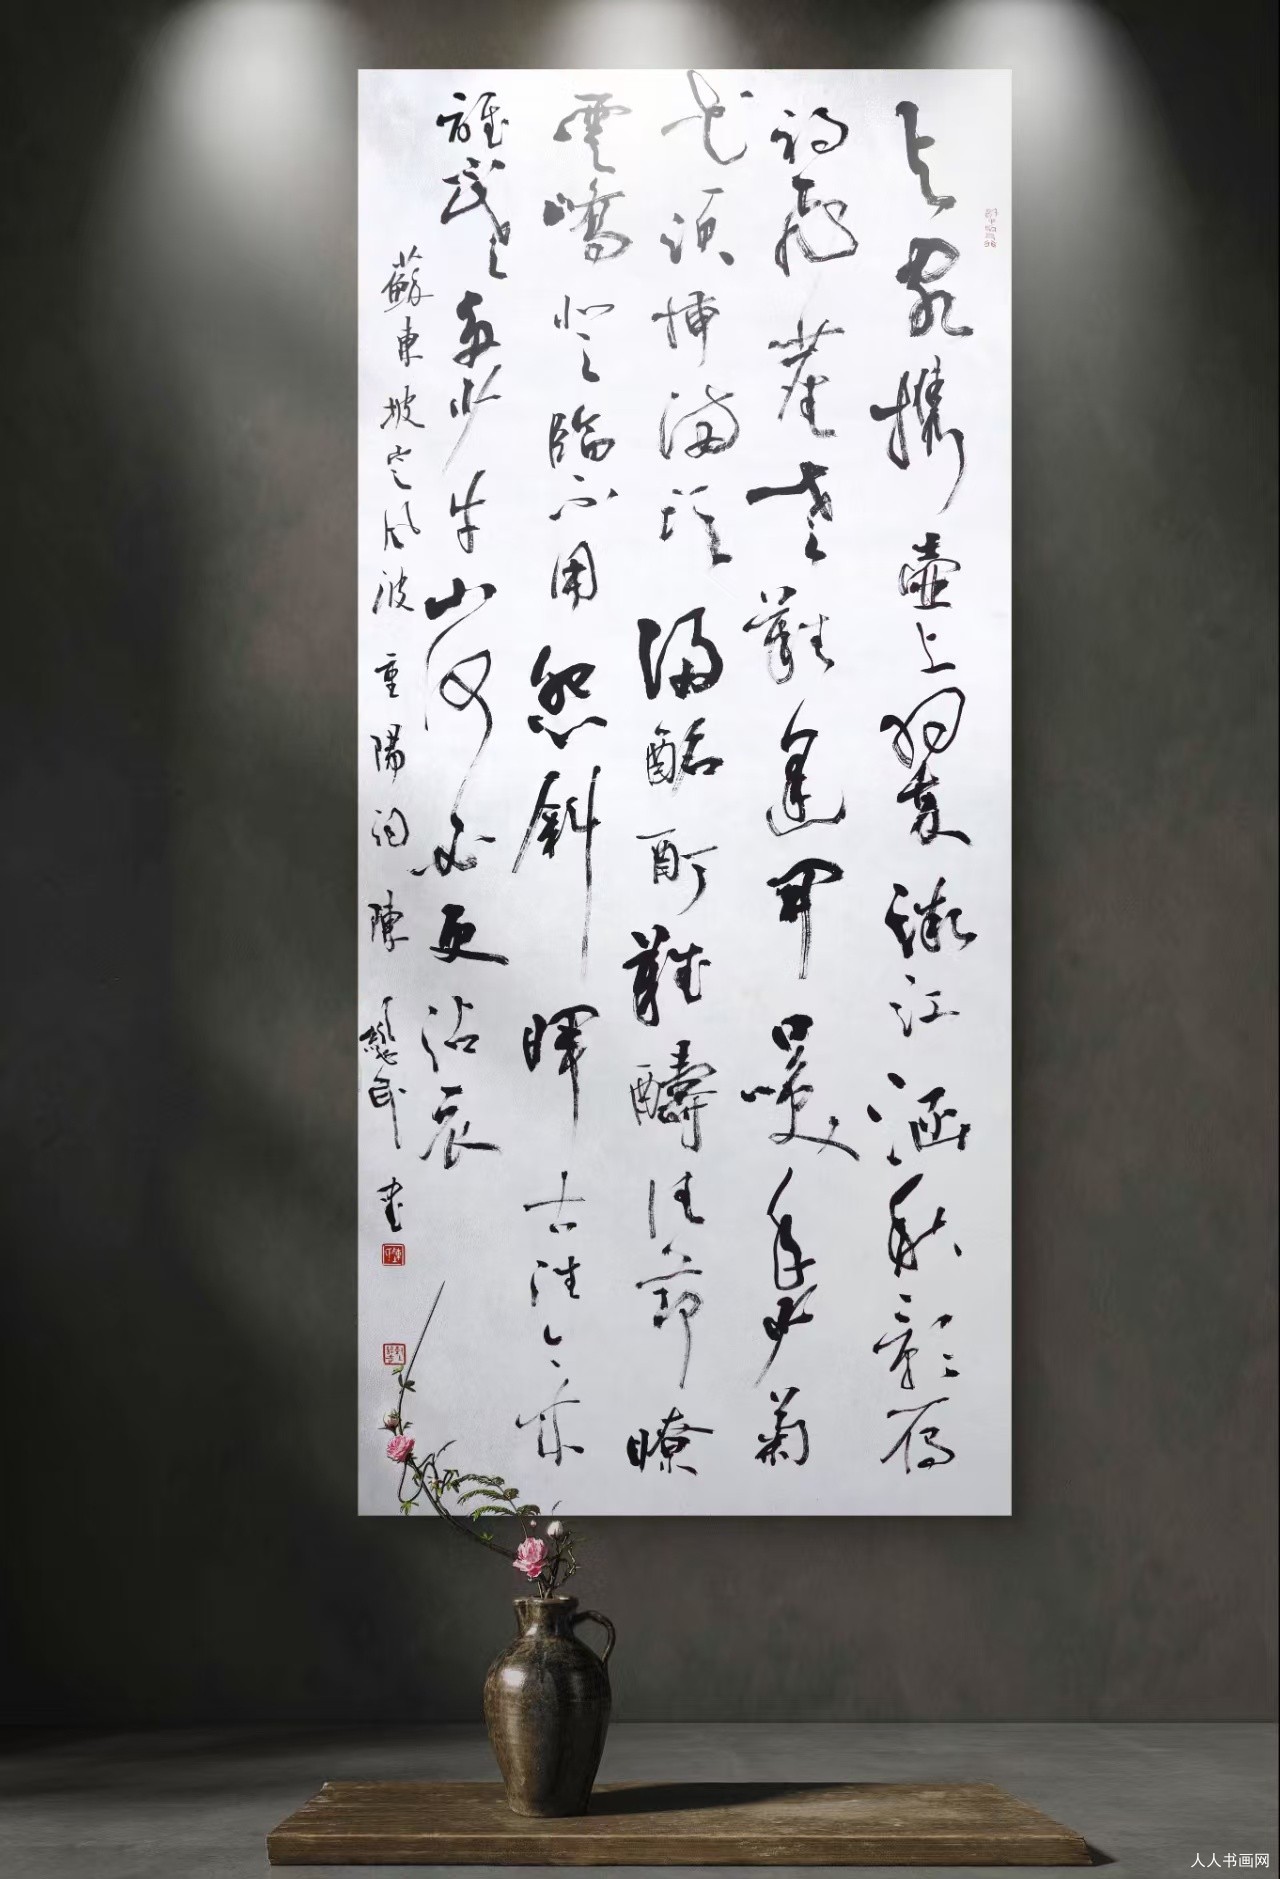 与客攜壺上翠微江涵秋影雁
初飛塵世難逢開口笑年少菊
花須插滿頭歸酩酊難醻佳節瞭
雲嶠登臨不用怨斜暉古往今來
誰老多少牛山何必更沾衣
蘇東坡定風波重陽詞 陳民書
人人书画网